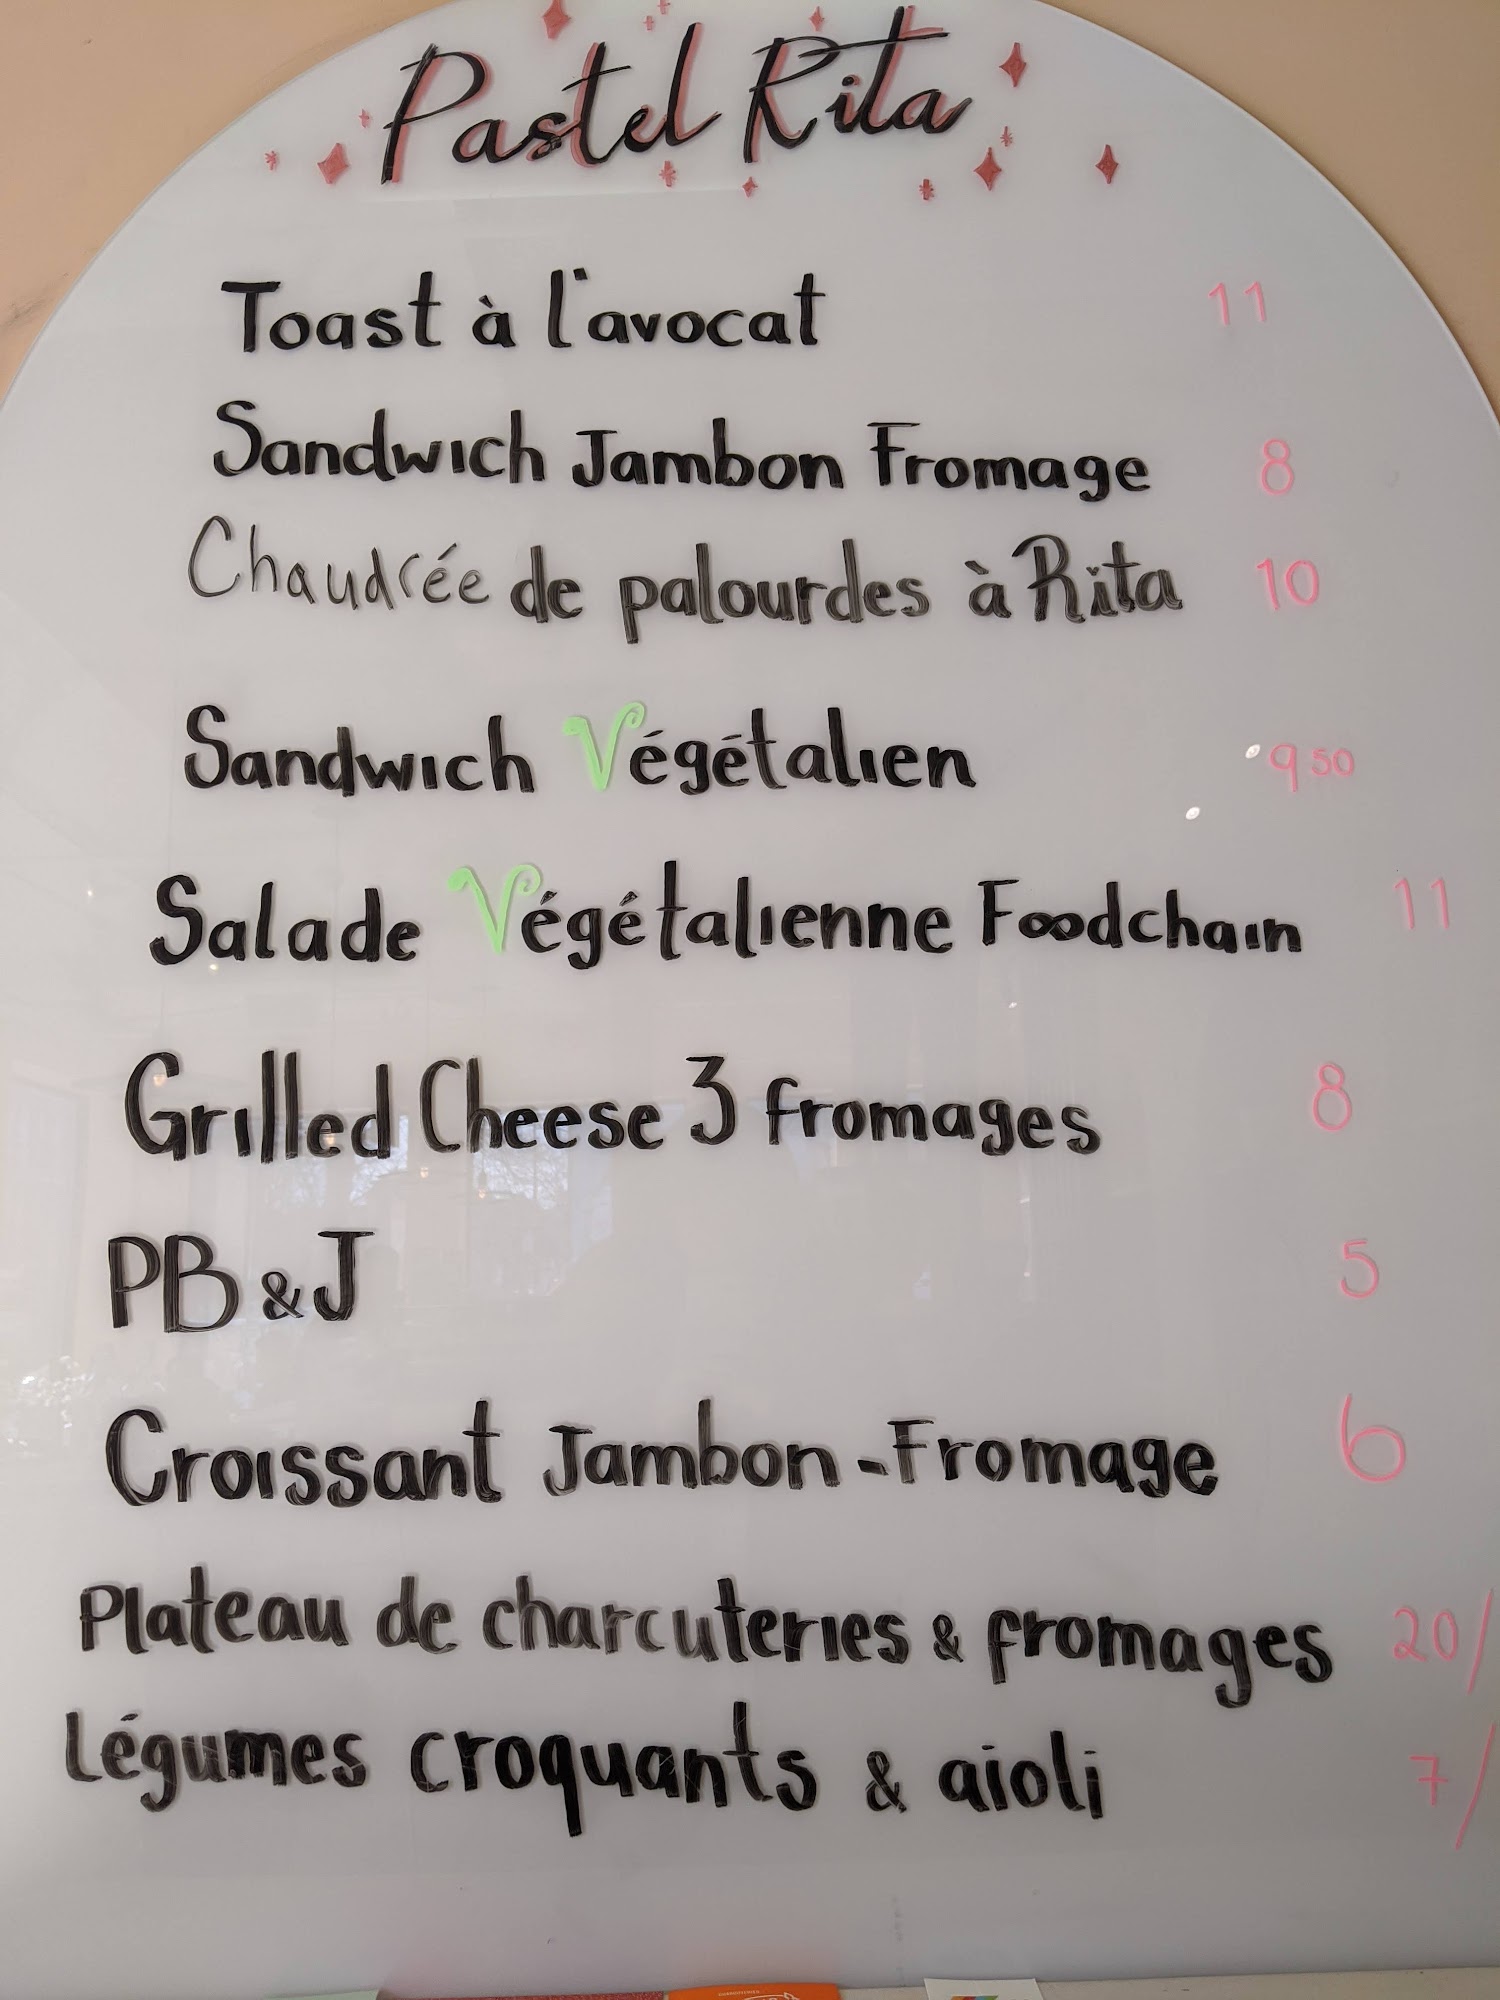 Pastel Rita
Toast à l'avocat 11
Sandwich Jambon Fromage 8
Chaudrée de palourdes à Rita 10
Sandwich Végétalien 9 50
Salade Végétalienne Foodchain 11
Grilled Cheese 3 fromages 8
PB & J 5
Croissant Jambon-Fromage 6
Plateau de charcuteries & fromages 20/
Légumes croquants & aioli 7/